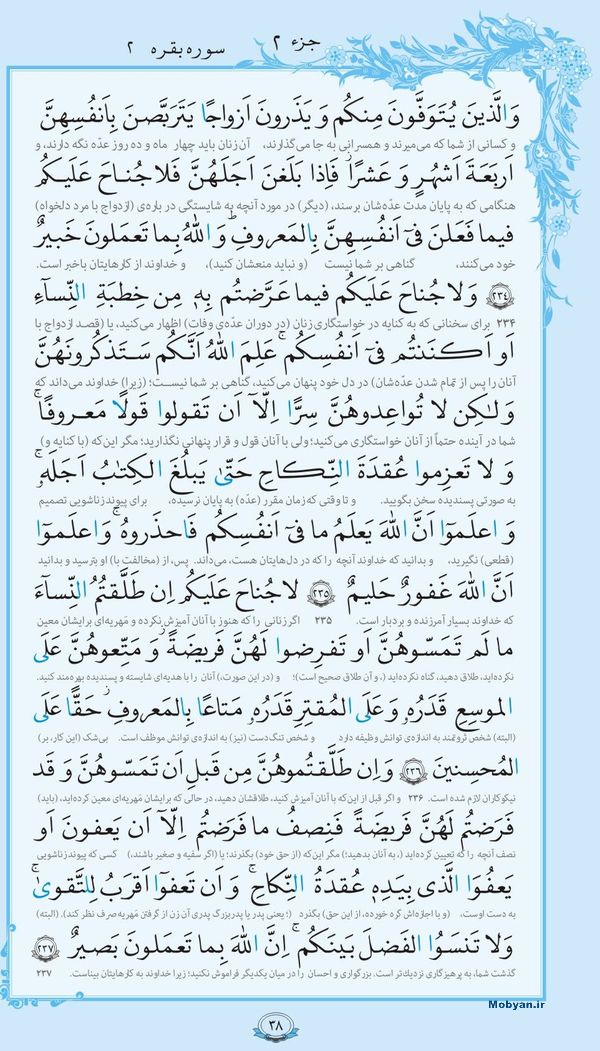 جزء ۲
سوره بقره ۲
وَالَّذینَ یُتَوَفَّونَ مِنکُم وَ یَذَرونَ اَزواجًا یَتَرَبَّصنَ بِاَنفُسِهِنَّ
و کسانی از شما که می‌میرند و همسرانی به جا می‌گذارند، آن زنان باید چهار ماه و ده روز عدّه نگه دارند، و
اَربَعَةَ اَشهُرٍ وَ عَشرًا فَاِذا بَلَغنَ اَجَلَهُنَّ فَلا جُناحَ عَلَیکُم
هنگامی که به پایان مدت عدّه‌شان برسند، (دیگر) در مورد آنچه به شایستگی در باره‌ی (ازدواج با مرد دلخواه)
فیما فَعَلنَ فی اَنفُسِهِنَّ بِالمَعروفِ وَ اللهُ بِما تَعمَلونَ خَبیرٌ
خود می‌کنند، گناهی بر شما نیست (و نباید منعشان کنید)، و خداوند از کارهایتان باخبر است.
﴿۲۳۴﴾ وَلا جُناحَ عَلَیکُم فیما عَرَّضتُم بِهٖ مِن خِطبَةِ النِّساءِ
۲۳۴ برای سخنانی که به کنایه در خواستگاری زنان (در دوران عدّه‌ی وفات) اظهار می‌کنید، یا (قصد ازدواج با
اَو اَکنَنتُم فی اَنفُسِکُم عَلِمَ اللهُ اَنَّکُم سَتَذکُرونَهُنَّ
آنان را پس از تمام شدن عدّه‌شان) در دل خود پنهان می‌کنید، گناهی بر شما نیست؛ (زیرا) خداوند می‌داند که
وَلٰکِن لا تُواعِدوهُنَّ سِرًّا اِلّا اَن تَقولوا قَولًا مَعروفًا
شما در آینده حتماً از آنان خواستگاری می‌کنید؛ ولی با آنان قول و قرار پنهانی نگذارید؛ مگر این‌که (با کنایه و)
وَ لا تَعزِموا عُقدَةَ النِّکاحِ حَتّیٰ یَبلُغَ الکِتٰبُ اَجَلَهٗ
به صورتی پسندیده سخن بگویید. و تا وقتی که زمان مقرر (عدّه) به پایان نرسیده، برای پیوند زناشویی تصمیم
وَ اعلَموا اَنَّ اللهَ یَعلَمُ ما فی اَنفُسِکُم فَاحذَروهُ وَ اعلَموا
(قطعی) نگیرید، و بدانید که خداوند آنچه را که در دل‌هایتان هست، می‌داند. پس، از (مخالفت با) او بترسید و بدانید
اَنَّ اللهَ غَفورٌ حَلیمٌ ﴿۲۳۵﴾ لا جُناحَ عَلَیکُم اِن طَلَّقتُمُ النِّساءَ
که خداوند بسیار آمرزنده و بردبار است. ۲۳۵ اگر زنانی را که هنوز با آنان آمیزش نکرده و مَهریه‌ای برایشان معین
ما لَم تَمَسّوهُنَّ اَو تَفرِضوا لَهُنَّ فَریضَةً وَ مَتِّعوهُنَّ عَلَی
نکرده‌اید، طلاق دهید، گناه نکرده‌اید (، و آن طلاق صحیح است)؛ و (در این صورت،) آنان را با هدیه‌ای شایسته و پسندیده بهره‌مند کنید.
الموسِعِ قَدَرُهٗ وَ عَلَی المُقتِرِ قَدَرُهٗ مَتاعًا بِالمَعروفِ حَقًّا عَلَی
(البته) شخص ثروتمند به اندازه‌ی توانش وظیفه دارد و شخص تنگ‌دست (نیز) به اندازه‌ی توانش موظف است. بی‌شک (این کار، بر)
المُحسِنینَ ﴿۲۳۶﴾ وَاِن طَلَّقتُموهُنَّ مِن قَبلِ اَن تَمَسّوهُنَّ وَ قَد
نیکوکاران لازم شده است. ۲۳۶ و اگر قبل از این‌که با آنان آمیزش کنید، طلاقشان دهید، در حالی که برایشان مَهریه‌ای معین کرده‌اید، (باید)
فَرَضتُم لَهُنَّ فَریضَةً فَنِصفُ ما فَرَضتُم اِلّا اَن یَعفونَ اَو
نصف آنچه را که تعیین کرده‌اید (، به آنان بدهید)؛ مگر این‌که آنان (از حق خود) بگذرند؛ یا (اگر سفیه و صغیر باشند،) کسی که پیوند زناشویی
یَعفُوَا الَّذی بِیَدِهٖ عُقدَةُ النِّکاحِ وَ اَن تَعفوا اَقرَبُ لِلتَّقویٰ
به دست اوست، (و با اجازه‌اش گره خورده، از این حق) بگذرد (؛ یعنی پدر یا پدربزرگ پدری آن زن از گرفتن مَهریه صرف نظر کند). (البته)
وَلا تَنسَوُا الفَضلَ بَینَکُم اِنَّ اللهَ بِما تَعمَلونَ بَصیرٌ ﴿۲۳۷﴾
گذشت شما، به پرهیزگاری نزدیک‌تر است. بزرگواری و احسان را در میان یکدیگر فراموش نکنید؛ زیرا خداوند به کارهایتان بیناست. ۲۳۷
Mobyan.ir
۳۸